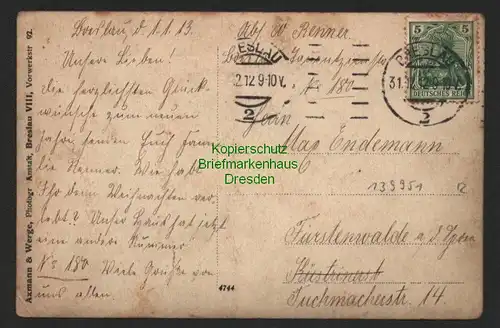 Breslau d. 1.1.13.
Unsere Lieben!
die herzlichsten Glück-
wünsche zum neuen
Jahre senden Euch Fami-
lie Renner. Wie habt
Ihr denn Weihnachten ver-
lebt? Unser Haus hat jetzt
eine andere Nummer
No 180. Viele Grüße von
uns allen.
Abs. W. Renner
No 180
BRESLAU
2.12 9-10V.
2
BRESLAU
31.
2
5 5
DEUTSCHES REICH
Herrn
Max Endemann
139951
Fürstenwalde a. d. Spree
Küstriner
Tuchmacherstr. 14.
4744
Axmann & Werge, Photogr. Anstalt, Breslau VIII, Vorwerkstr. 92.
Kopierschutz
Briefmarkenhaus
Dresden